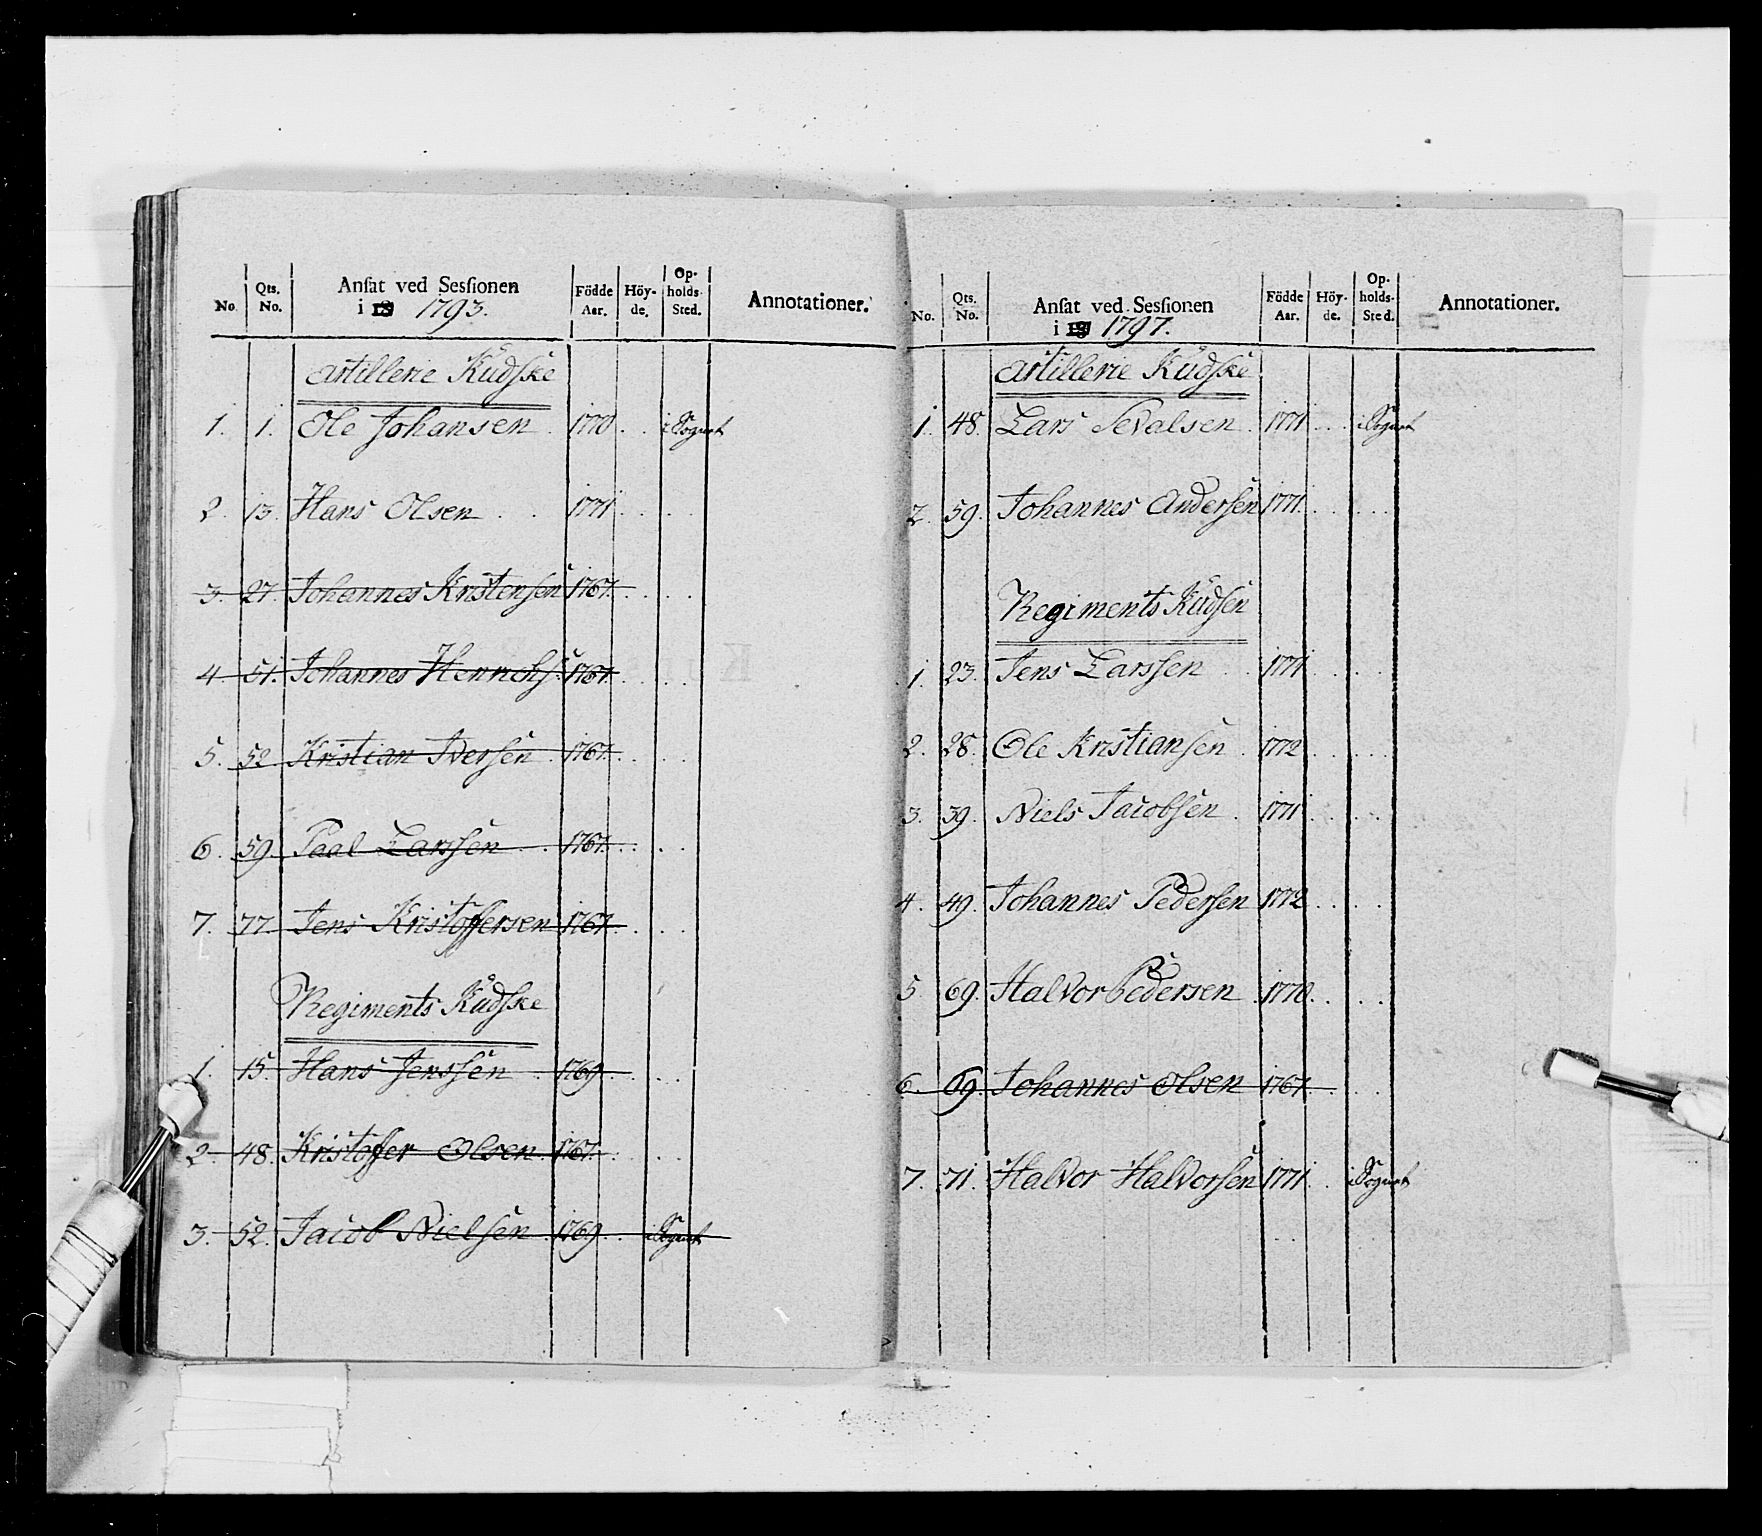 No. Qts. No. Ansat ved Sessionen i 18 1793. Födde Aar. Höy-de. Op-holds-Sted. Annotationer.
Artillerie Kudske
1. 1. Ole Johansen . 1770 . . i Sognet
2. 13. Hans Olsen . . 1771 . . . .
3. 27. Johannes Kristensen 1767. . . .
4. 51. Johannes Henrichs: 1767. . . .
5. 52 Kristian Iversen . 1767. . . .
6. 59. Paal Larssen . . 1767. . . .
7. 77. Jens Kristoffersen 1767. . . .
Regiments Kudske
1. 15. Hans Jenssen . 1769 . . . .
2. 48. Kristoffer Olsen . 1767. . . .
3. 52. Jacob Nielsen . 1769 . . i Sognet
No. Qts. No. Ansat ved Sessionen i 18 1797. Födde Aar. Höy-de. Op-holds-Sted. Annotationer.
Artillerie Kudske
1. 48. Lars Sevalsen . 1771 . . i Sognet
2. 59. Johannes Andersen 1771. . . .
Regiments Kudsen
1. 23. Jens Larssen . . 1771 . . . .
2. 28. Ole Kristiansen . 1772 . . . .
3. 39. Niels Jacobsen . 1771 . . . .
4. 49. Johannes Pedersen 1772 . . . .
5. 69. Halvor Pedersen . 1770 . . . .
6. 69. Johannes Olsen 1767. . . .
7. 71. Halvor Halvorsen 1771 . . i Sognet